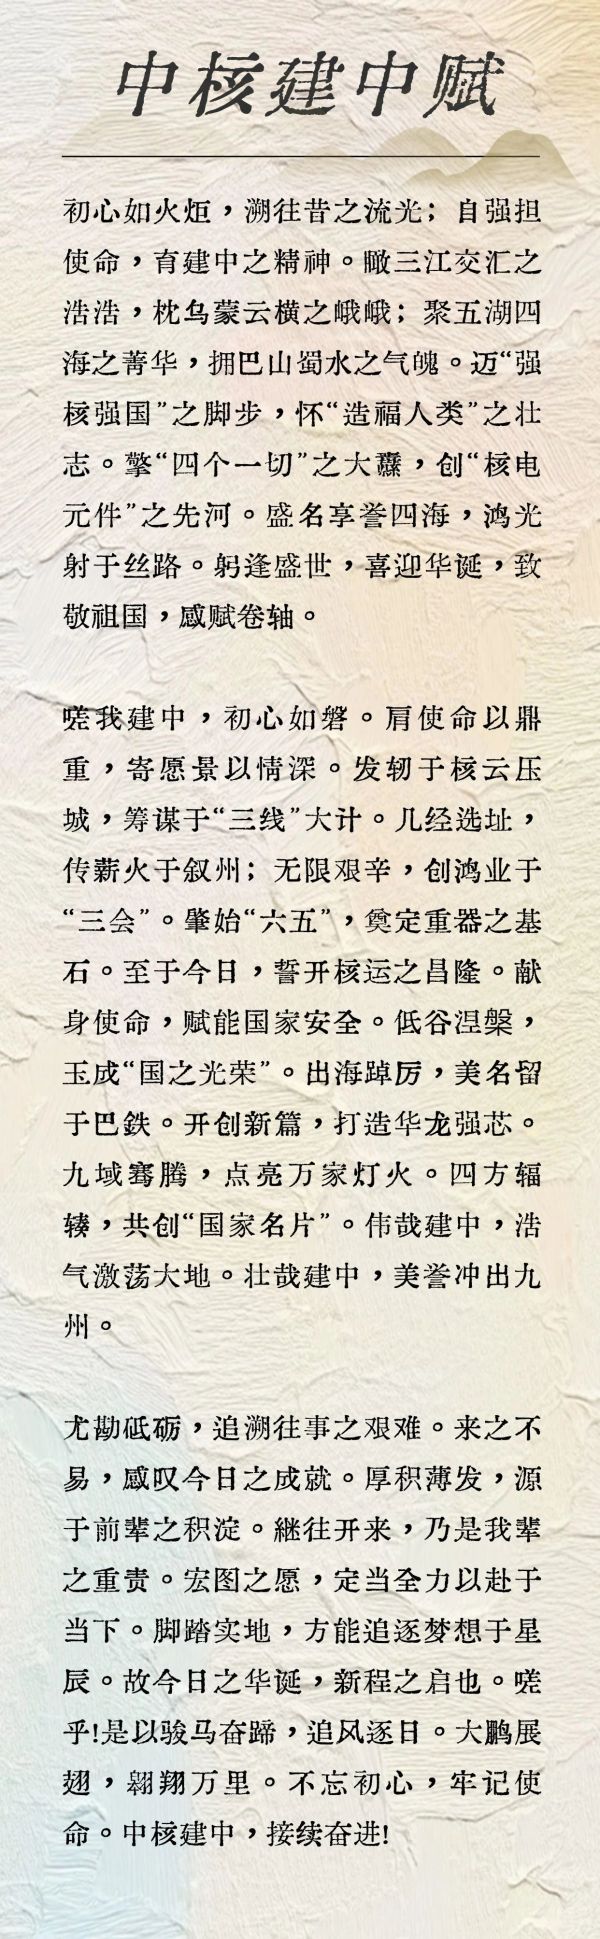 中核建中赋
初心如火炬，溯往昔之流光；自强担
使命，育建中之精神。瞰三江交汇之
浩浩，枕乌蒙云横之峨峨；聚五湖四
海之菁华，拥巴山蜀水之气魄。迈“强
核强国”之脚步，怀“造福人类”之壮
志。擎“四个一切”之大纛，创“核电
元件”之先河。盛名享誉四海，鸿光
射于丝路。躬逢盛世，喜迎华诞，致
敬祖国，感赋卷轴。
嗟我建中，初心如磐。肩使命以鼎
重，寄愿景以情深。发轫于核云压
城，筹谋于“三线”大计。几经选址，
传薪火于叙州；无限艰辛，创鸿业于
“三会”。肇始“六五”，奠定重器之基
石。至于今日，誓开核运之昌隆。献
身使命，赋能国家安全。低谷涅槃，
玉成“国之光荣”。出海踔厉，美名留
于巴铁。开创新篇，打造华龙强芯。
九域骞腾，点亮万家灯火。四方辐
辏，共创“国家名片”。伟哉建中，浩
气激荡大地。壮哉建中，美誉冲出九
州。
尤勘砥砺，追溯往事之艰难。来之不
易，感叹今日之成就。厚积薄发，源
于前辈之积淀。继往开来，乃是我辈
之重责。宏图之愿，定当全力以赴于
当下。脚踏实地，方能追逐梦想于星
辰。故今日之华诞，新程之启也。嗟
乎!是以骏马奋蹄，追风逐日。大鹏展
翅，翱翔万里。不忘初心，牢记使
命。中核建中，接续奋进!